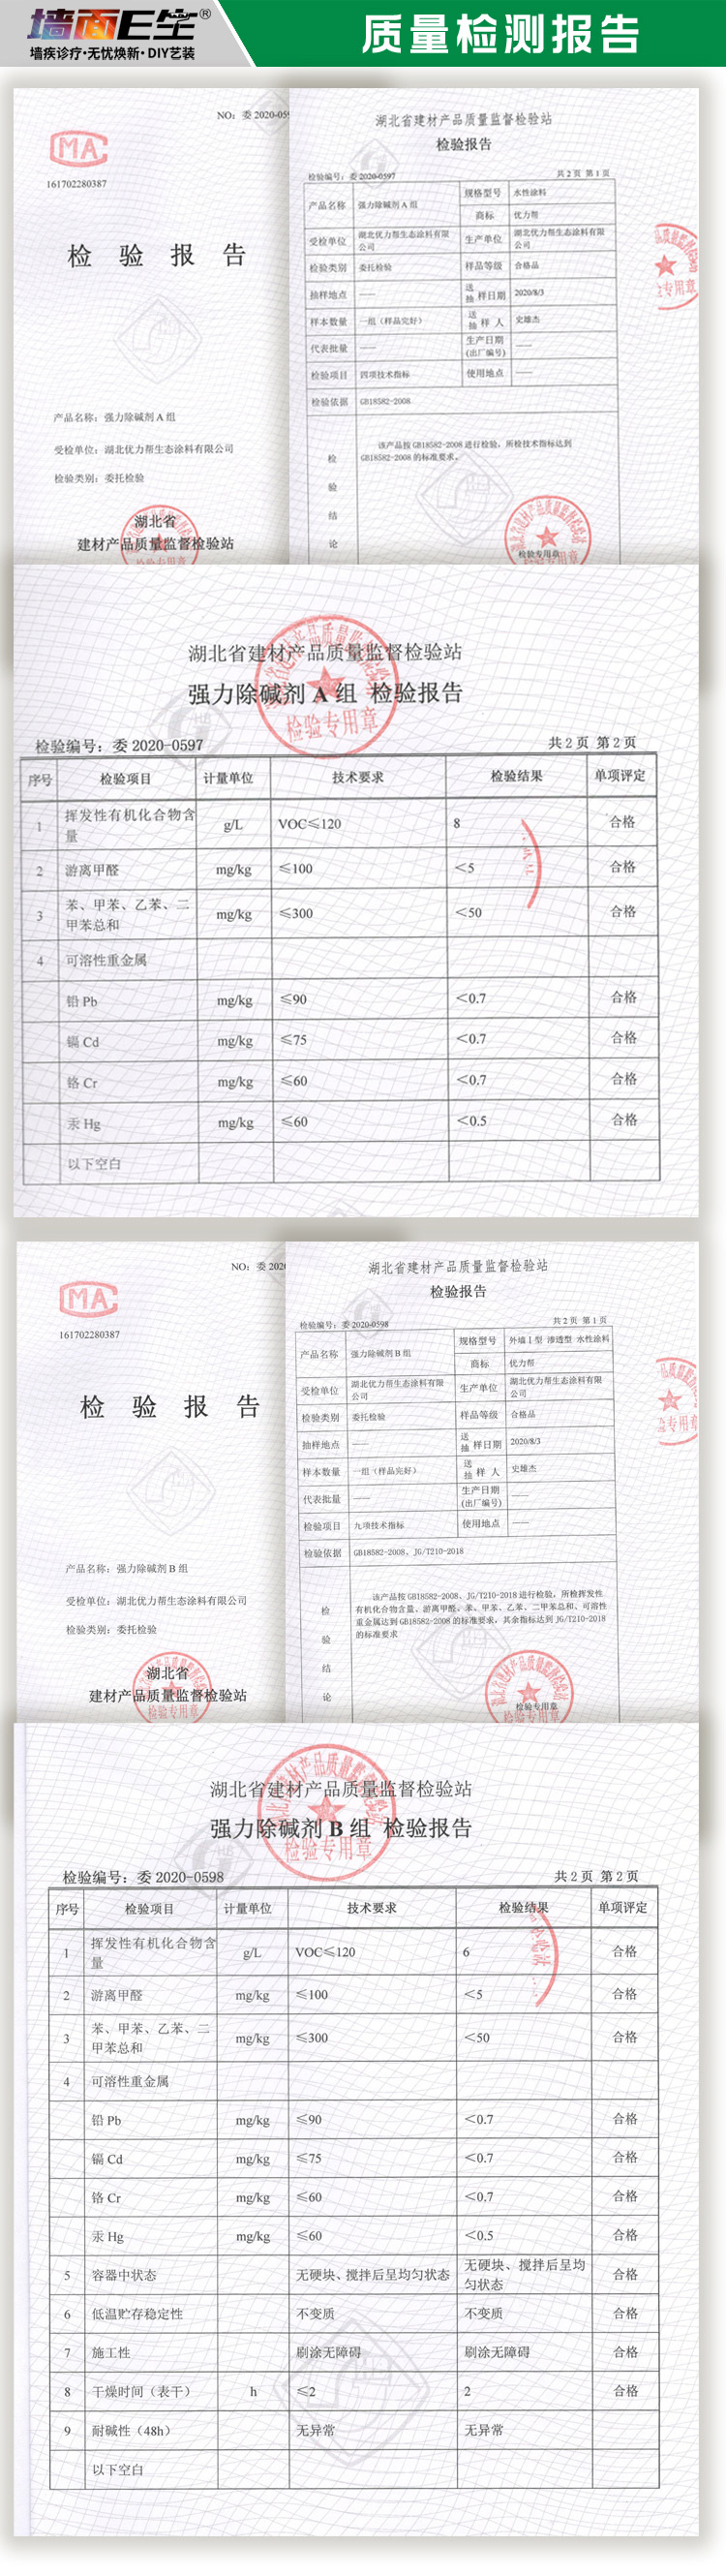 墙面E生®
墙疾诊疗·无忧焕新·DIY艺装
质量检测报告
NO: 委 2020-059
MA
161702280387
检 验 报 告
产品名称：强力除碱剂 A 组
受检单位：湖北优力帮生态涂料有限公司
检验类别：委托检验
湖北省
建材产品质量监督检验站
检验专用章
湖北省建材产品质量监督检验站
检验报告
检验编号：委 2020-0597 共 2 页 第 1 页
产品名称 强力除碱剂 A 组 规格型号 水性涂料
商标 优力帮
受检单位 湖北优力帮生态涂料有限公司 生产单位 湖北优力帮生态涂料有限公司
检验类别 委托检验 样品等级 合格品
抽样地点 —— 送抽样日期 2020/8/3
样本数量 一组（样品完好） 送抽样人 史雄杰
代表批量 —— 生产日期(出厂编号) ——
检验项目 四项技术指标 使用地点 ——
检验依据 GB18582-2008
检验结论
该产品按 GB18582-2008 进行检验，所检技术指标达到
GB18582-2008 的标准要求。
检验专用章
湖北省建材产品质量监督检验站
强力除碱剂 A 组 检验报告
检验专用章
检验编号：委 2020-0597 共 2 页 第 2 页
序号 检验项目 计量单位 技术要求 检验结果 单项评定
1 挥发性有机化合物含量 g/L VOC≤120 8 合格
2 游离甲醛 mg/kg ≤100 ＜5 合格
3 苯、甲苯、乙苯、二甲苯总和 mg/kg ≤300 ＜50 合格
4 可溶性重金属
铅 Pb mg/kg ≤90 ＜0.7 合格
镉 Cd mg/kg ≤75 ＜0.7 合格
铬 Cr mg/kg ≤60 ＜0.7 合格
汞 Hg mg/kg ≤60 ＜0.5 合格
以下空白
NO: 委 202
MA
161702280387
检 验 报 告
产品名称：强力除碱剂 B 组
受检单位：湖北优力帮生态涂料有限公司
检验类别：委托检验
湖北省
建材产品质量监督检验站
检验专用章
湖北省建材产品质量监督检验站
检验报告
检验编号：委 2020-0598 共 2 页 第 1 页
产品名称 强力除碱剂 B 组 规格型号 外墙 I 型 渗透型 水性涂料
商标 优力帮
受检单位 湖北优力帮生态涂料有限公司 生产单位 湖北优力帮生态涂料有限公司
检验类别 委托检验 样品等级 合格品
抽样地点 —— 送抽样日期 2020/8/3
样本数量 一组（样品完好） 送抽样人 史雄杰
代表批量 —— 生产日期(出厂编号) ——
检验项目 九项技术指标 使用地点 ——
检验依据 GB18582-2008、JG/T210-2018
检验结论
该产品按 GB18582-2008、JG/T210-2018 进行检验，所检挥发性
有机化合物含量、游离甲醛、苯、甲苯、乙苯、二甲苯总和、可溶性
重金属达到 GB18582-2008 的标准要求，其余指标达到 JG/T210-2018
的标准要求
检验专用章
湖北省建材产品质量监督检验站
强力除碱剂 B 组 检验报告
检验专用章
检验编号：委 2020-0598 共 2 页 第 2 页
序号 检验项目 计量单位 技术要求 检验结果 单项评定
1 挥发性有机化合物含量 g/L VOC≤120 6 合格
2 游离甲醛 mg/kg ≤100 ＜5 合格
3 苯、甲苯、乙苯、二甲苯总和 mg/kg ≤300 ＜50 合格
4 可溶性重金属
铅 Pb mg/kg ≤90 ＜0.7 合格
镉 Cd mg/kg ≤75 ＜0.7 合格
铬 Cr mg/kg ≤60 ＜0.7 合格
汞 Hg mg/kg ≤60 ＜0.5 合格
5 容器中状态 无硬块、搅拌后呈均匀状态 无硬块、搅拌后呈均匀状态 合格
6 低温贮存稳定性 不变质 不变质 合格
7 施工性 刷涂无障碍 刷涂无障碍 合格
8 干燥时间（表干） h ≤2 2 合格
9 耐碱性（48h） 无异常 无异常
以下空白